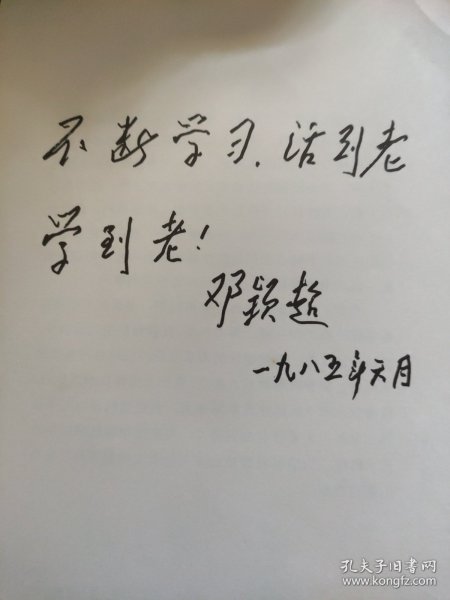 不断学习,活到老
学到老!
邓颖超
一九八五年六月
孔夫子旧书网
www.kongfz.com